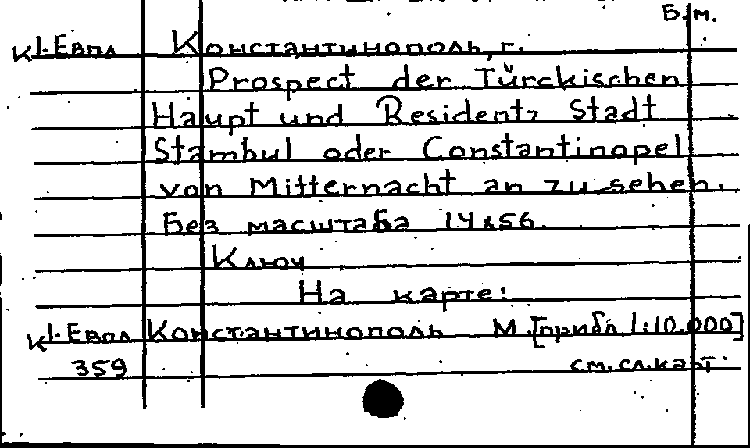 Б.м.
К1-Евпл Константинополь, г.
Prospect der Türckischen
Haupt und Residentz Stadt
Stambul oder Constantinopel
von Mitternacht an zu sehen.
Без масштаба 14x56.
Ключ
На карте:
К1-Евпл Константинополь М.[прибл 1:10.000]
359 см.сл.карт.